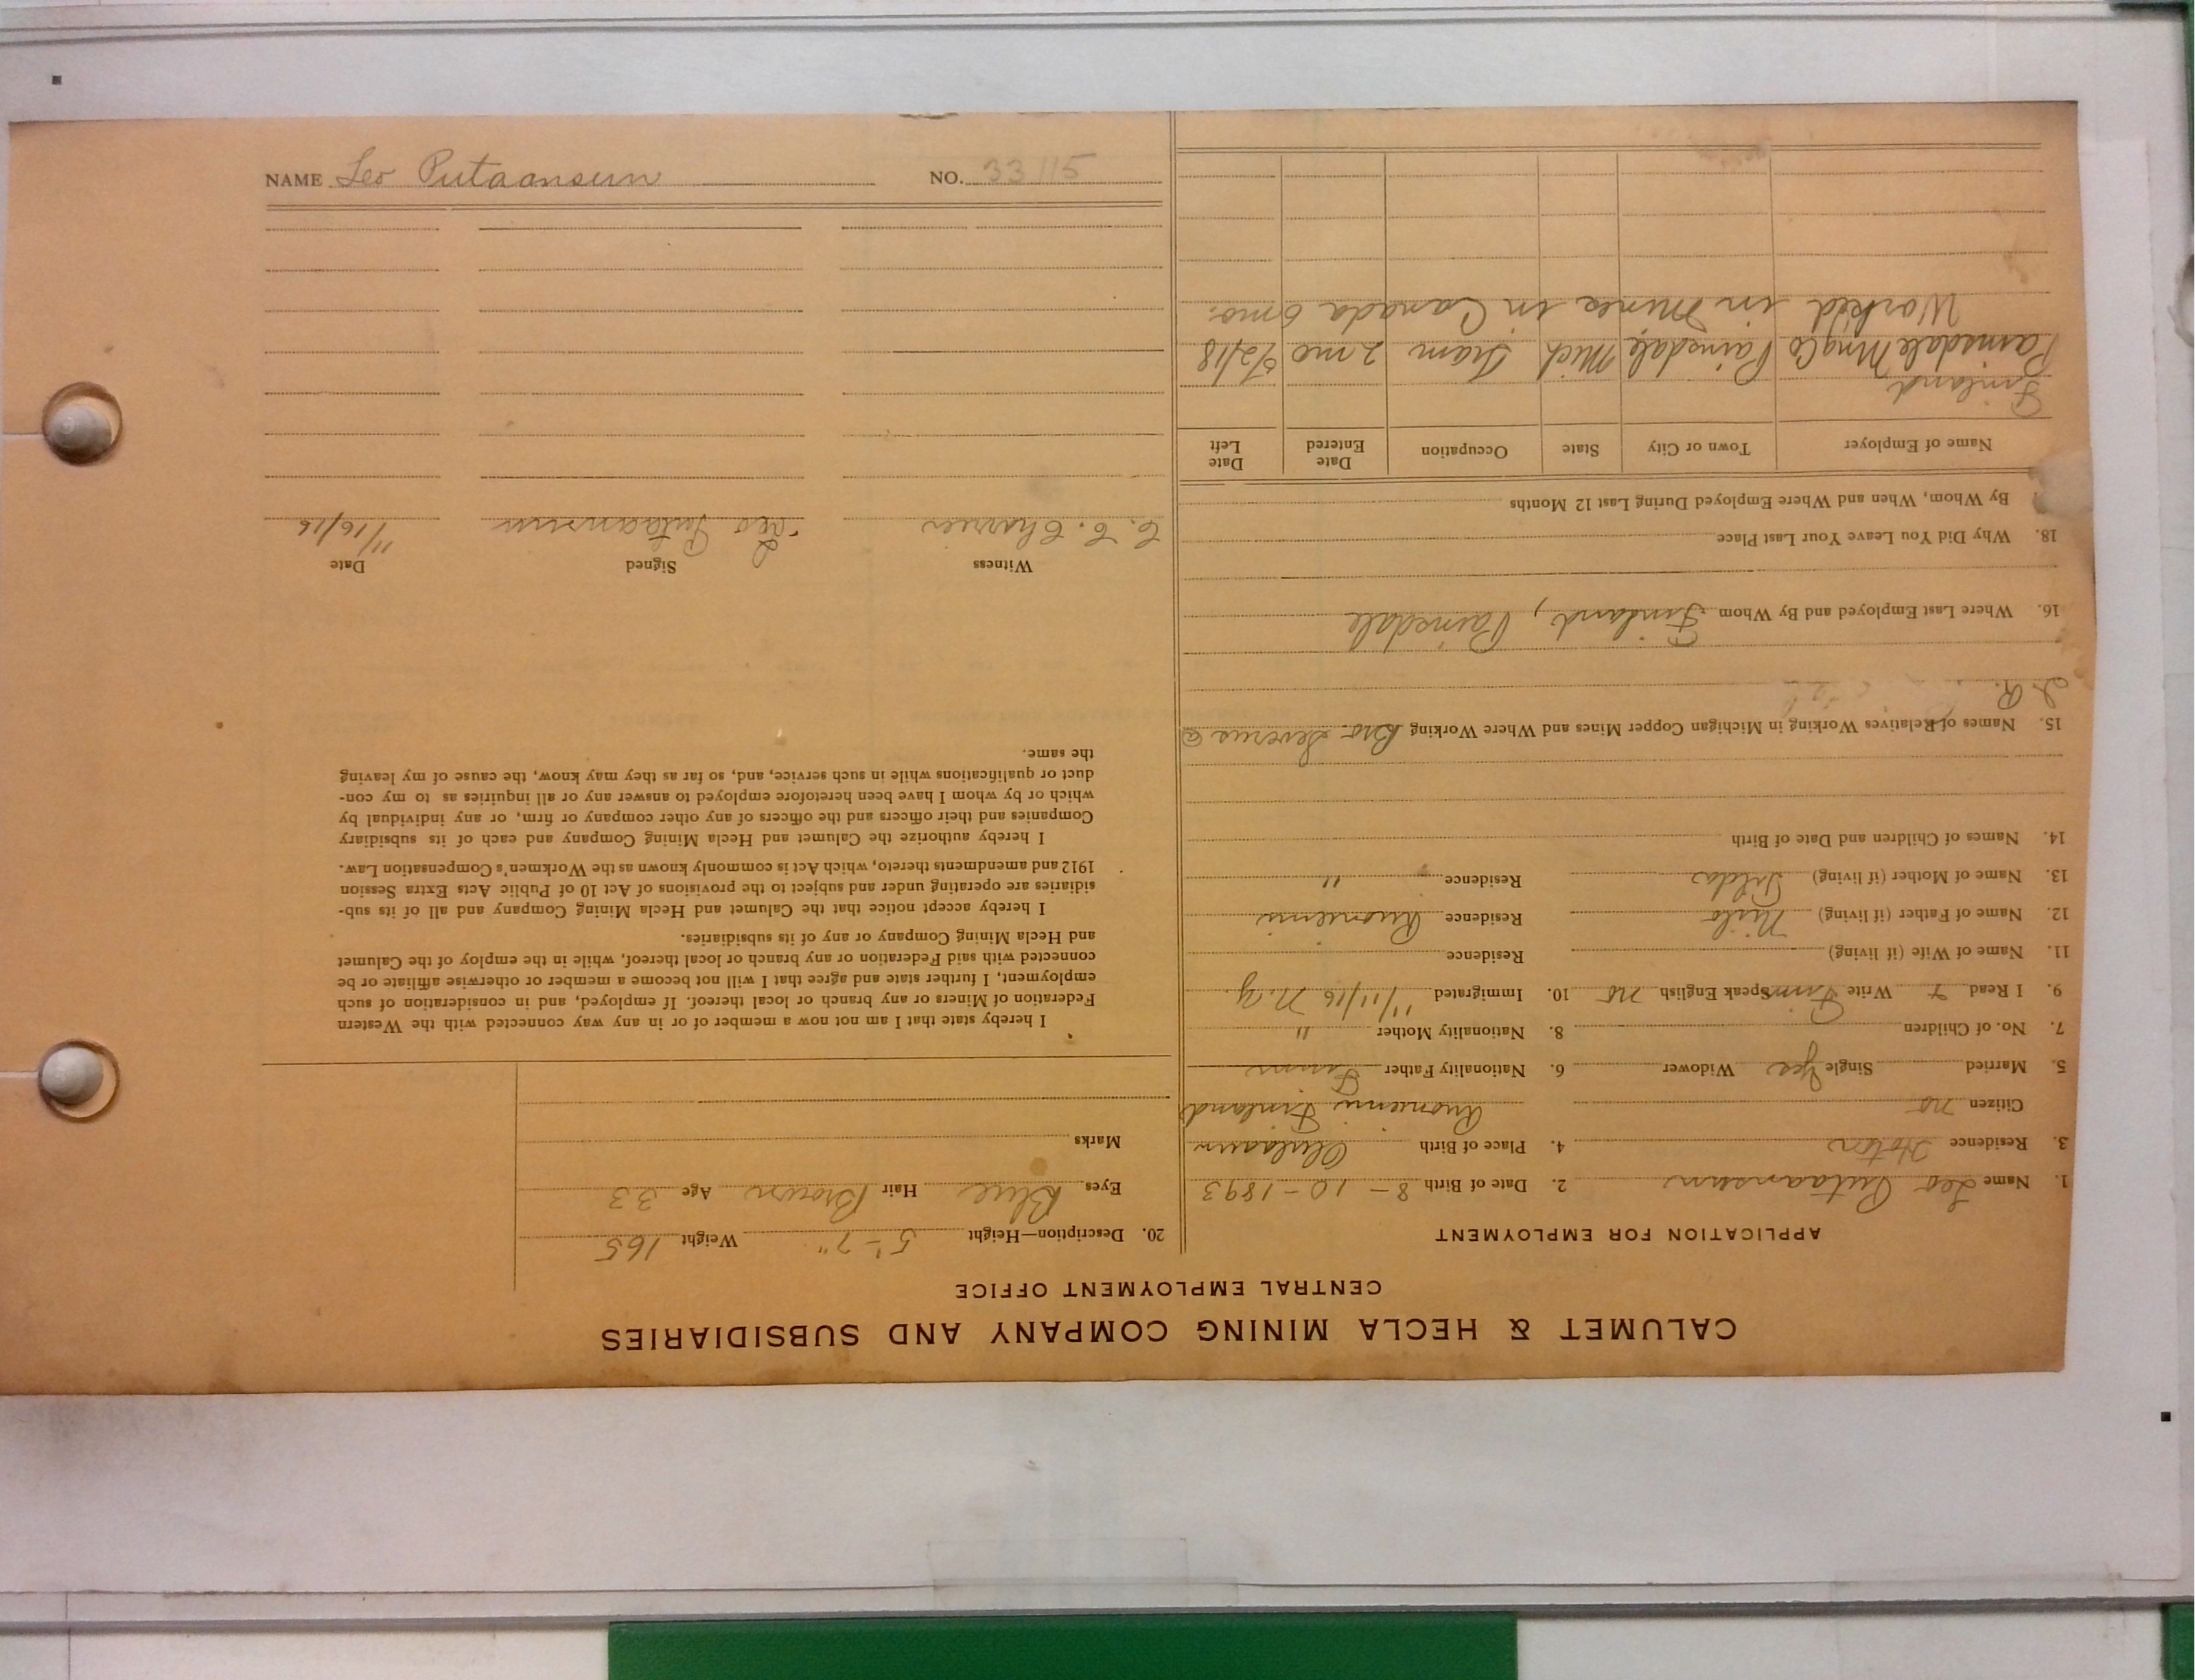 NAME Leo Putaansuu NO. 33115
CALUMET & HECLA MINING COMPANY AND SUBSIDIARIES
CENTRAL EMPLOYMENT OFFICE
APPLICATION FOR EMPLOYMENT
1. Name Leo Putaansuu 2. Date of Birth 8-10-1893
3. Residence 4. Place of Birth
Citizen no Finland
5. Married Single Yes Widower 6. Nationality Father Finn
7. No. of Children 8. Nationality Mother "
9. I Read Write Finn Speak English no 10. Immigrated 11/11/16 N.Y.
11. Name of Wife (if living) Residence
12. Name of Father (if living) Residence
13. Name of Mother (if living) Residence "
14. Names of Children and Date of Birth
15. Names of Relatives Working in Michigan Copper Mines and Where Working Bro
16. Where Last Employed and By Whom Finland, Painsdale
18. Why Did You Leave Your Last Place
By Whom, When and Where Employed During Last 12 Months
Name of Employer Town or City State Occupation Date Entered Date Left
Finland
Painsdale Mng Co Painsdale Mich Tram 2 mo 5/2/18
Worked in Mines in Canada 6 mo.
20. Description—Height 5'-7" Weight 165
Eyes Blue Hair Brown Age 33
Marks
I hereby state that I am not now a member of or in any way connected with the Western
Federation of Miners or any branch or local thereof. If employed, and in consideration of such
employment, I further state and agree that I will not become a member or otherwise affiliate or be
connected with said Federation or any branch or local thereof, while in the employ of the Calumet
and Hecla Mining Company or any of its subsidiaries.
I hereby accept notice that the Calumet and Hecla Mining Company and all of its sub-
sidiaries are operating under and subject to the provisions of Act 10 of Public Acts Extra Session
1912 and amendments thereto, which Act is commonly known as the Workmen's Compensation Law.
I hereby authorize the Calumet and Hecla Mining Company and each of its subsidiary
Companies and their officers and the officers of any other company or firm, or any individual by
which or by whom I have been heretofore employed to answer any or all inquiries as to my con-
duct or qualifications while in such service, and, so far as they may know, the cause of my leaving
the same.
Witness Signed Date
Leo Putaansuu 11/16/16